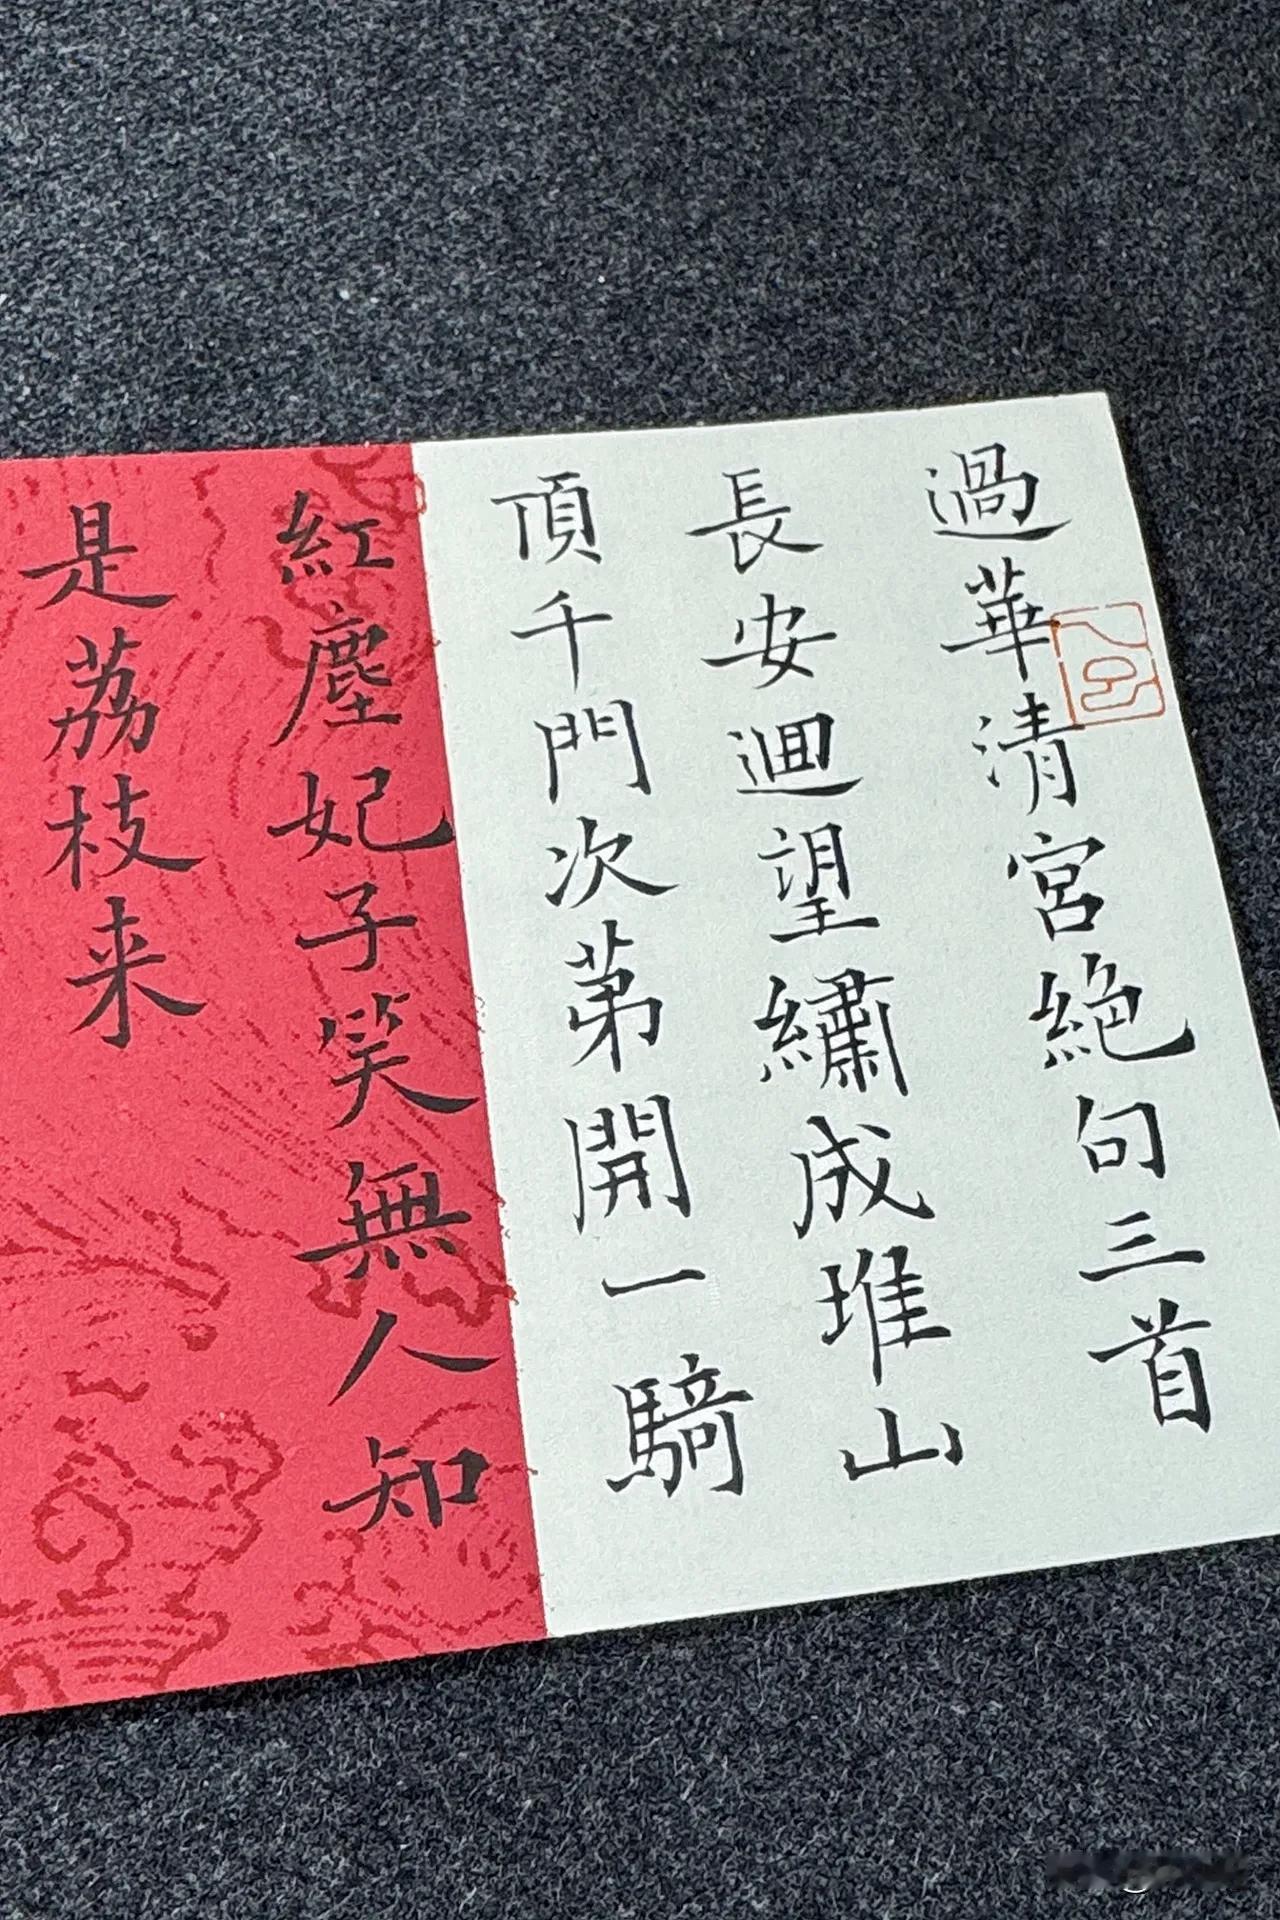 過華清宮絶句三首
長安迴望繡成堆山
頂千門次苐開一騎
紅塵妃子笑無人知
是荔枝来